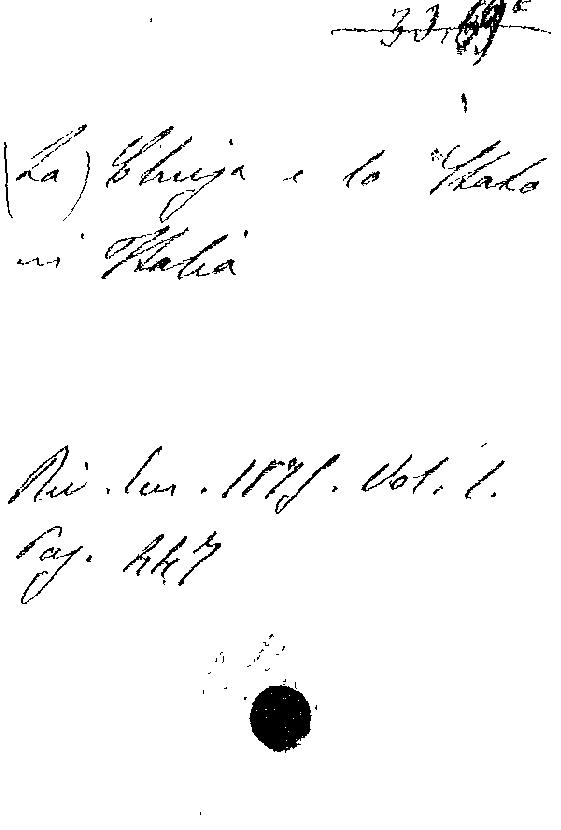 (La) Chiesa e lo Stato
in Italia
Riv. Eur. 1875. Vol. 1.
Pag. 447